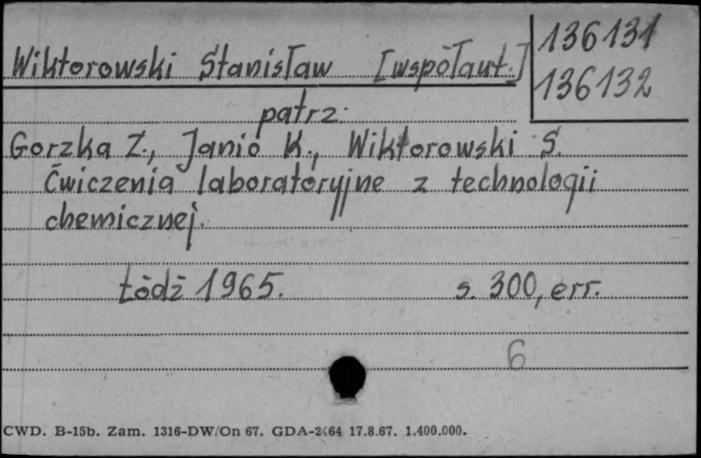 136131
Wiktorowski Stanisław [współaut.]
136132
patrz:
Gorzka Z., Janio K., Wiktorowski S.
Ćwiczenia laboratoryjne z technologii
chemicznej.
Łódź 1965. s. 300, err.
6
CWD. B-15b. Zam. 1316-DW/On 67. GDA-2464 17.8.67. 1.400.000.